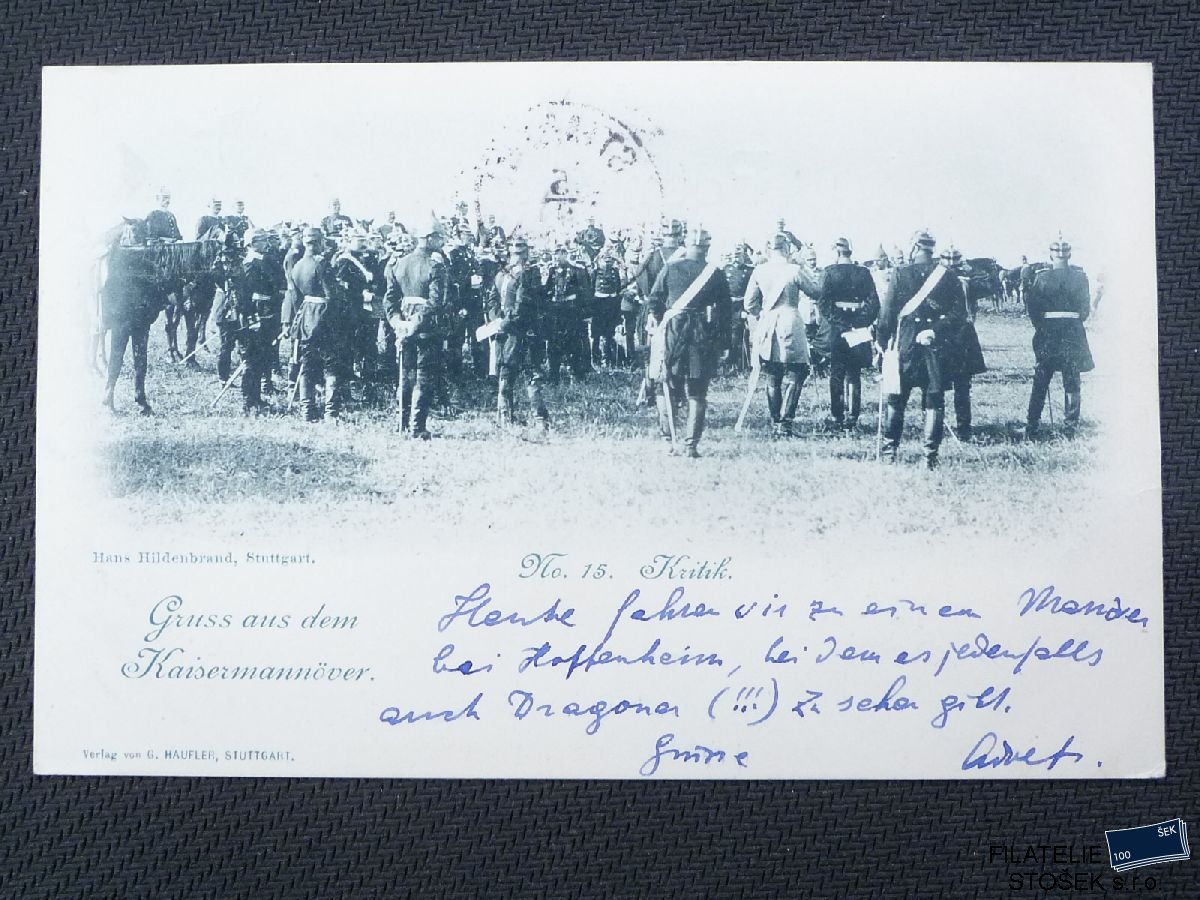 Hans Hildenbrand, Stuttgart.
No. 15. Kritik.
Gruss aus dem
Kaisermannöver.
Heute fahren wir zu einem Manöver
bei Hoffenheim, bei dem es jedenfalls
auch Dragoner (!!!) zu sehen gibt.
Grüsse
Verlag von G. HAUFLER, STUTTGART.
ŠEK
100
FILATELIE
STOŠEK s.r.o.